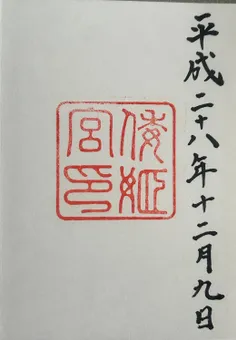 平成二十八年十二月九日
倭姫
宮印